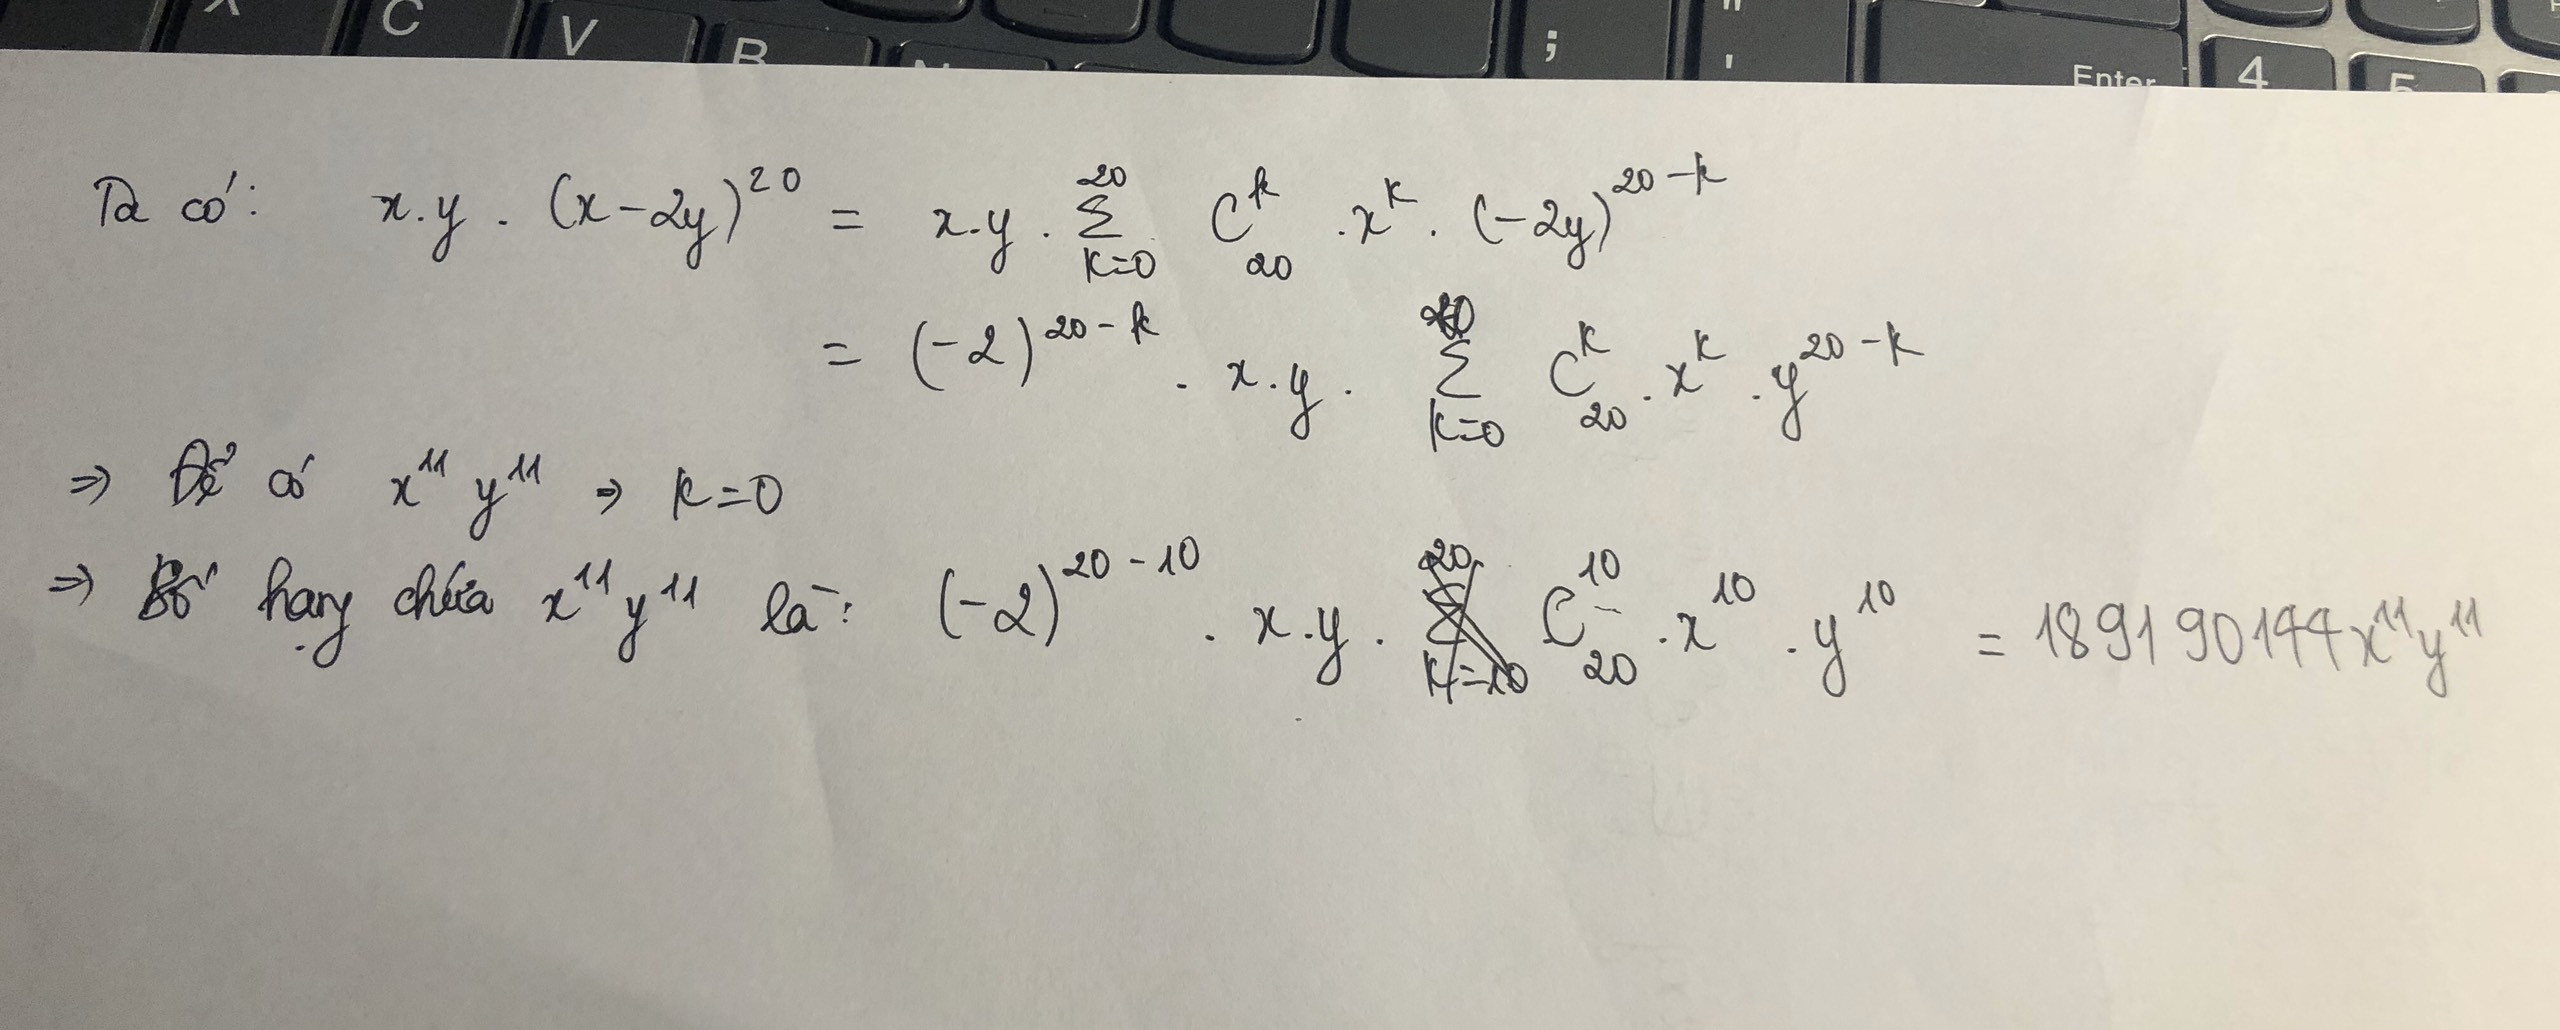 X C V B N ; " ' Enter 4 5
Ta có: x.y.(x-2y)^20 = x.y. Σ_{k=0}^{20} C_20^k .x^k.(-2y)^{20-k}
= (-2)^{20-k} . x.y. Σ_{k=0}^{20} C_20^k .x^k .y^{20-k}
⇒ Để có x^11 y^11 ⇒ k=0
⇒ Số hạng chứa x^11 y^11 là: (-2)^{20-10} . x.y. C_20^10 .x^10 .y^10 = 189190144x^11y^11